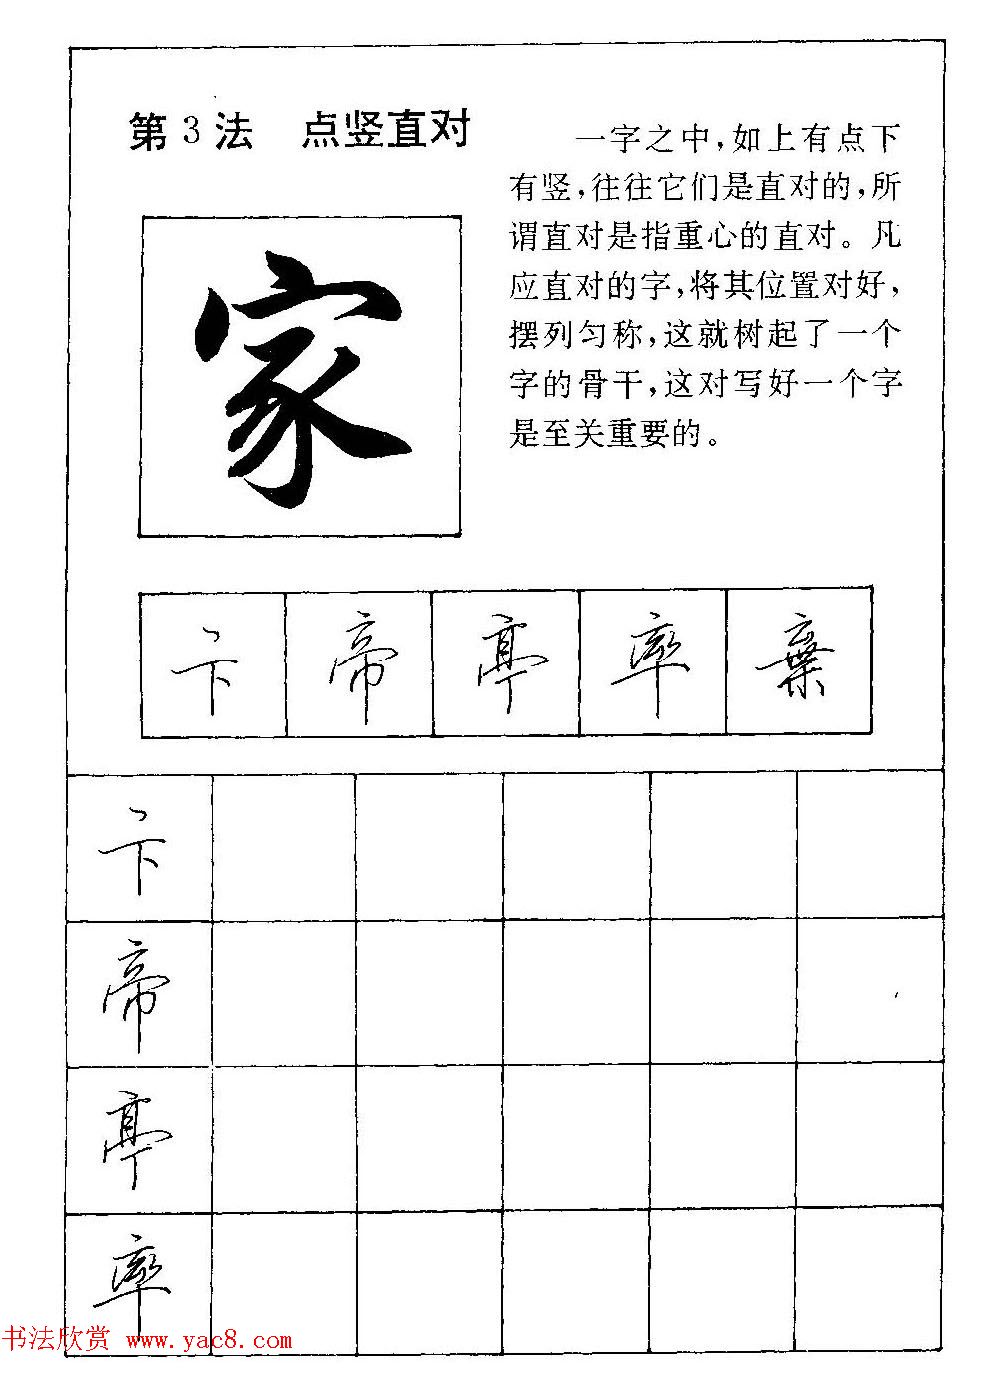 第3法 点竖直对
一字之中，如上有点下
有竖，往往它们是直对的，所
谓直对是指重心的直对。凡
应直对的字，将其位置对好，
摆列匀称，这就树起了一个
字的骨干，这对写好一个字
是至关重要的。
家
卞 帝 亭 率 棄
卞
帝
亭
率
书法欣赏 www.yac8.com